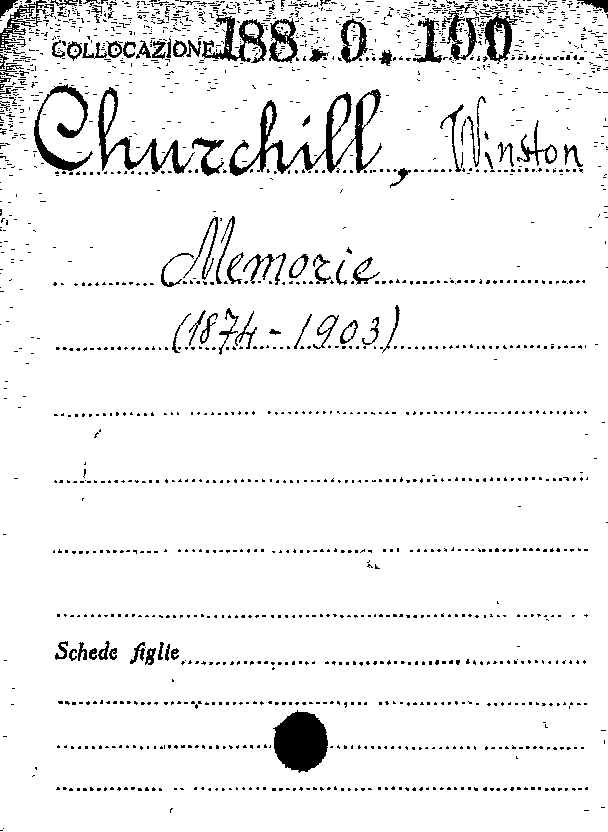 COLLOCAZIONE 188.9.190
Churchill, Winston
Memorie
(1874-1903)
Schede figlie